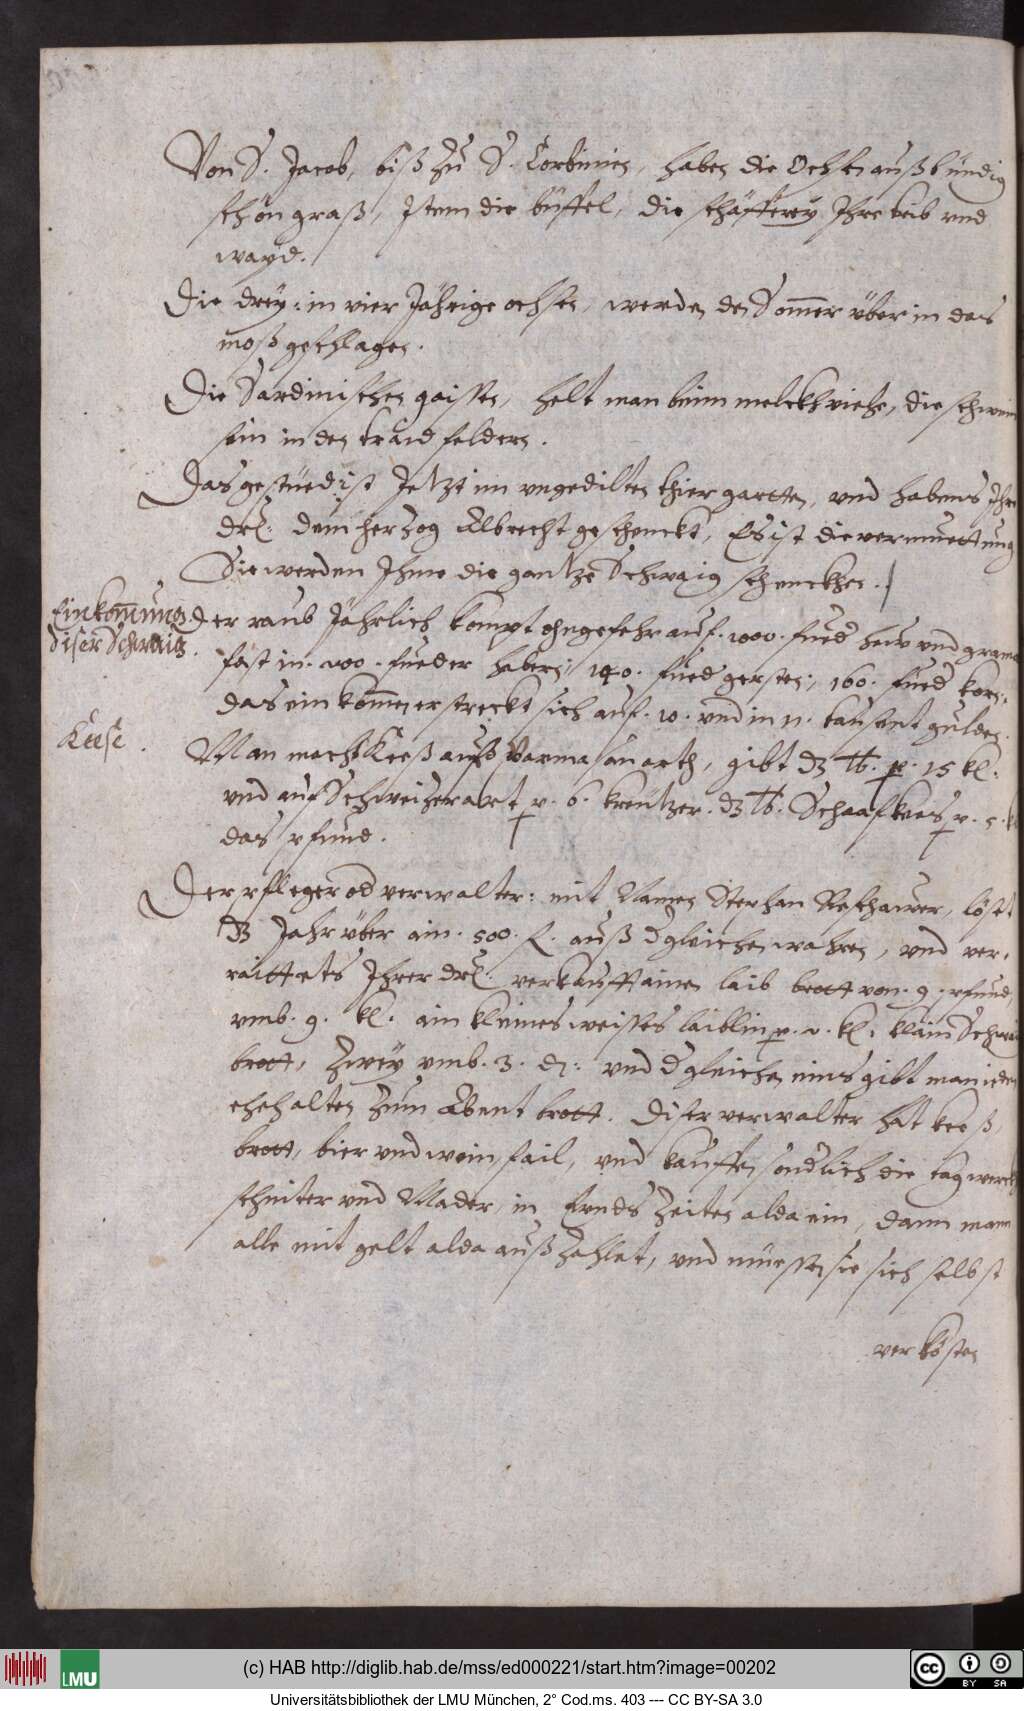 Von S. Jacob, biß zu S. Corbinien, haben die Ochsen außbündig
schön graß, Item die büffel, die schäfferey Ihre trib vnd
wayd.
Die drey: in vier Jährige ochsen, werden den Sommer über in das
moß geschlagen.
Die Sardinischen gaissen, helt man beim melckhviehe, die schwein
sein in den traid feldern.
Das gestüed ist Jetzt im thiergartten, vnd habens Ihre
drl: dem herzog Albrecht geschenckt, Es ist die vermuettung
Sie werden Ihme die gantze Schwaig schenckhen.
Einkommung
diser Schwaig.
Der raub Jährlich kompt ohngefehr auf. 1000. fued heiw vnd gramat
fast in. 200. fueder habern, 140. fued gersten, 160. fued korn,
das einkommen erstreckt sich auf. 10. vnd in 11. tausent gulden.
Keese.
Man macht Keeß auf Parmasan arth, gibt dz lb. p. 15 kl.
vnd auf Schweizer art p. 6. kreützer. dz lb. Schaafkees p. 5. kl
das pfund.
Der pfleger od verwalter: mit Namen Stephan, löset
dz Jahr über ain. 500. fl. auß dgleichen wahren, vnd ver-
raittets Ihrer drl. verkaufft ainen laib brott von. 9. pfund,
vmb. 9. kl. ain kleines weisses laiblin p. 2. kl. klain Schwaig
brott, zwey vmb. 3. d: vnd dgleichen eins gibt man ieden
ehehalten zum Abent brott. Diser verwalter hat keeß,
brott, bier vnd wein fail, vnd kauffen sondlich die tagwerckh
schniter vnd Mader, in Ernds Zeiten alda ein, dann mann
alle mit gelt alda außzahlet, vnd müessen sie sich selbst
verkösten
(c) HAB http://diglib.hab.de/mss/ed000221/start.htm?image=00202
LMU
BY SA
Universitätsbibliothek der LMU München, 2° Cod.ms. 403 --- CC BY-SA 3.0